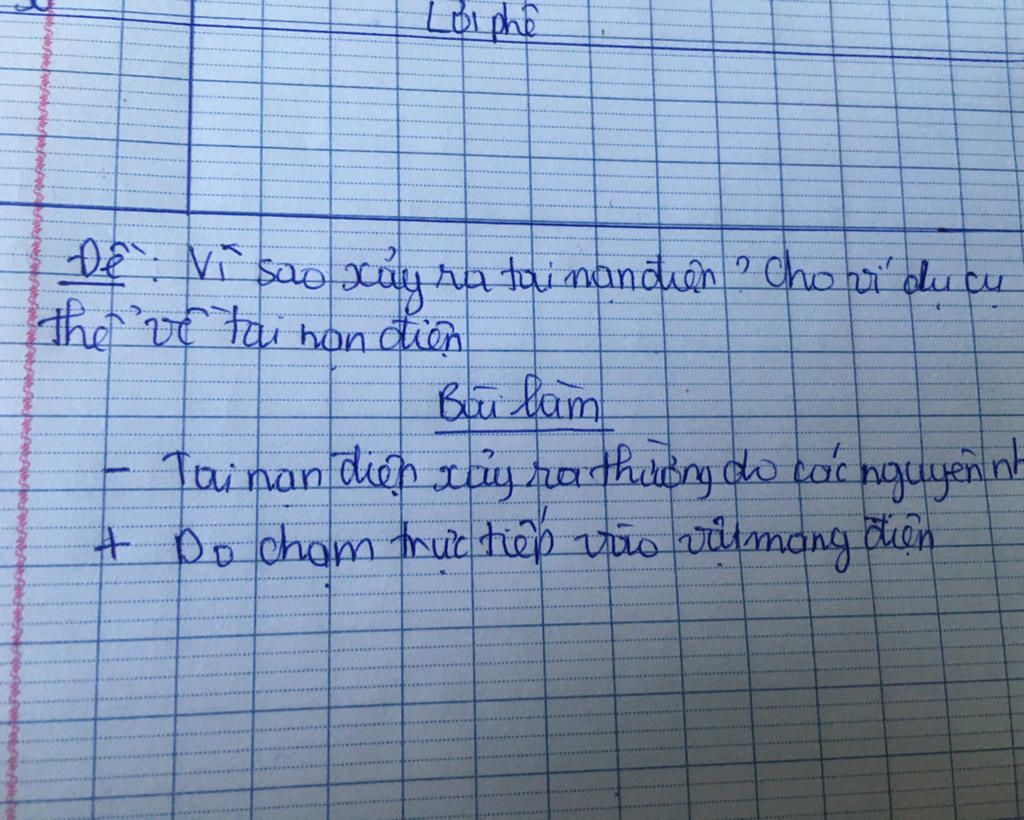 Lời phê
Đề: Vì sao xảy ra tai nạn điện? Cho ví dụ cụ
thể về tai nạn điện
Bài làm
- Tai nạn điện xảy ra thường do các nguyên nh
+ Do chạm trực tiếp vào vật mang điện